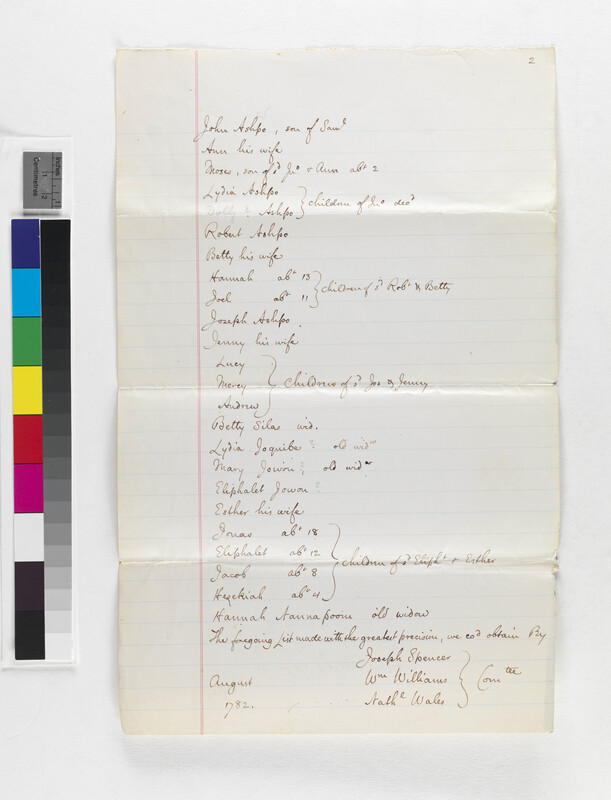 2
John Ashpo, son of Sam^l
Ann his wife
Moses, son of s^d Jn^o & Ann ab^t 2
Lydia Ashpo
Ashpo } children of Jn^o dec^d
Robert Ashpo
Betty his wife
Hannah ab^t 13
Joel ab^t 11 } children of s^d Rob^t & Betty
Joseph Ashpo.
Jenny his wife
Lucy
Mercy } Children of s^d Jos & Jenny
Andrew
Betty Silas wid.
Lydia Joquibe? old wid^w
Mary Jowon?, old wid^w
Eliphalet Jowon?
Esther his wife
Jonas ab^t 18
Eliphalet ab^t 12
Jacob ab^t 8 } children of s^d Eliph^t & Esther
Hezekiah ab^t 4
Hannah Nannapoom old widow
The foregoing List made with the greatest precision, we co^d obtain By
Joseph Spencer
August W^m Williams } Com^tee
1782. Nath^l Wales
Inches
Centimetres
1
2